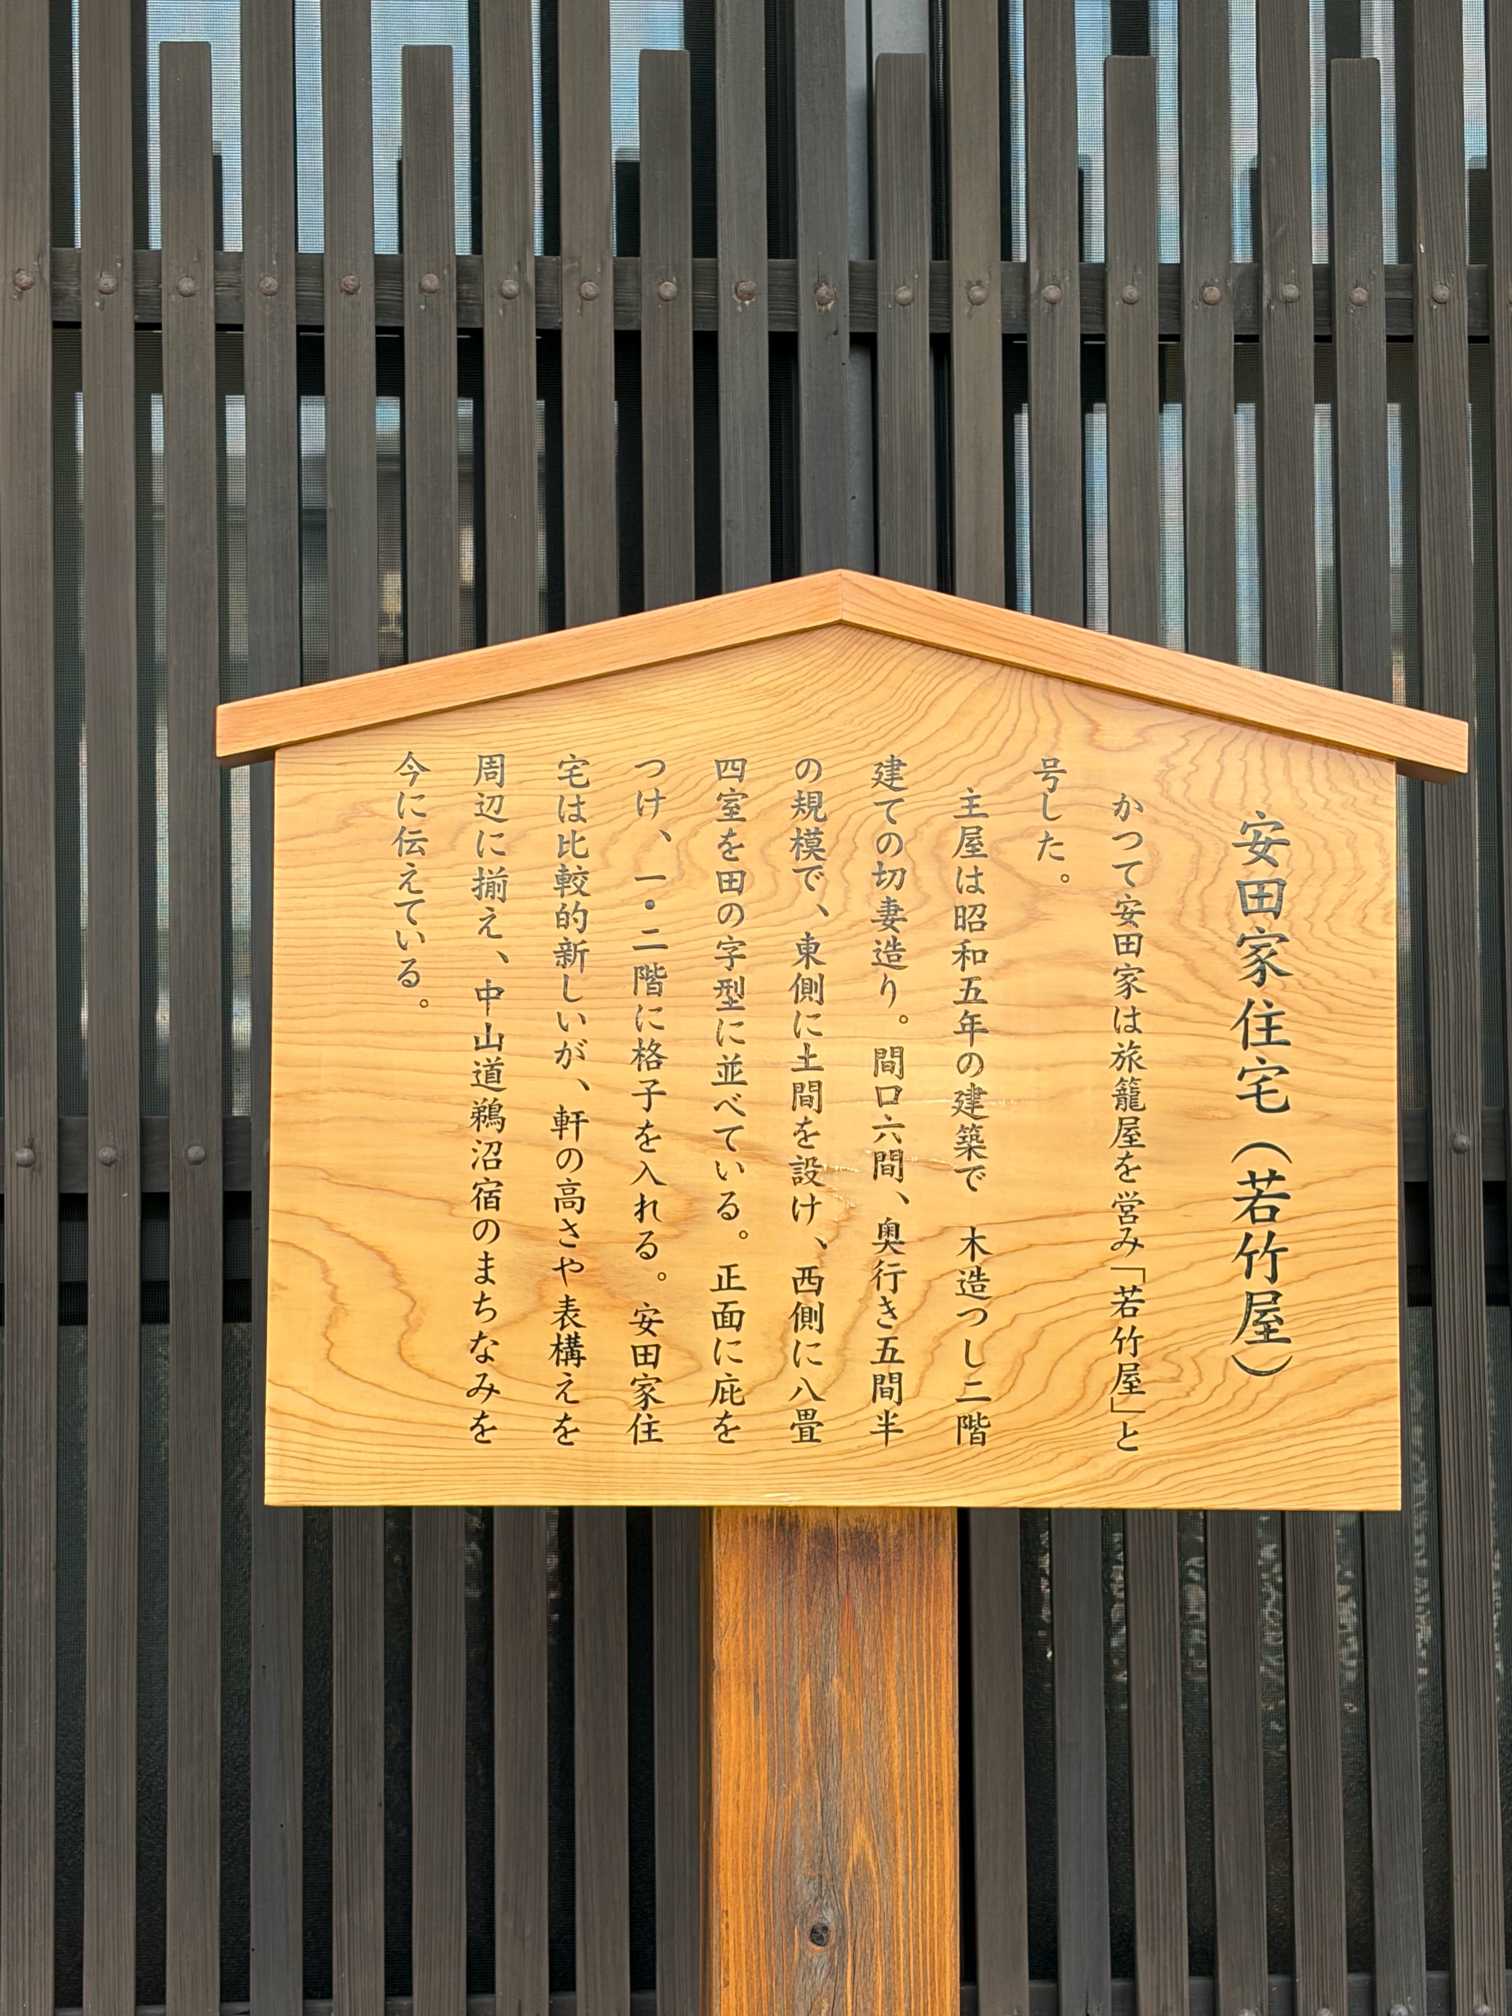 安田家住宅（若竹屋）
かつて安田家は旅籠屋を営み「若竹屋」と
号した。
主屋は昭和五年の建築で　木造つし二階
建ての切妻造り。間口六間、奥行き五間半
の規模で、東側に土間を設け、西側に八畳
四室を田の字型に並べている。正面に庇を
つけ、一・二階に格子を入れる。安田家住
宅は比較的新しいが、軒の高さや表構えを
周辺に揃え、中山道鵜沼宿のまちなみを
今に伝えている。